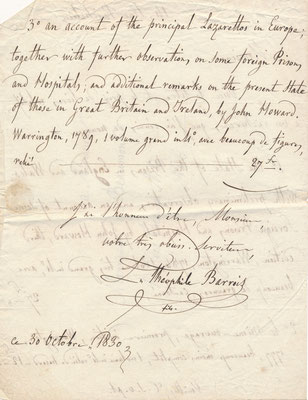 3° an account of the principal Lazarettos in Europe;
together with further observations on some foreign Prisons
and Hospitals, and additional remarks on the present State
of those in Great Britain and Ireland, by John Howard.
Warrington, 1789, 1 volume grand in 4°, avec beaucoup de figures,
relié 27 fr.
J'ai l'honneur d'être, Monsieur,
votre très obéiss. Serviteur,
Théophile Barrois
ce 30 Octobre 1830